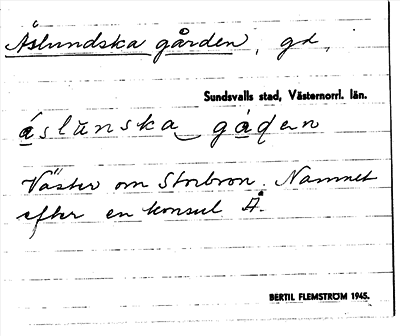 Åslundska gården, gd,
Sundsvalls stad, Västernorrl. län.
áslunska gáḍen
Väster om Storbron. Namnet
efter en konsul Å.
BERTIL FLEMSTRÖM 1945.